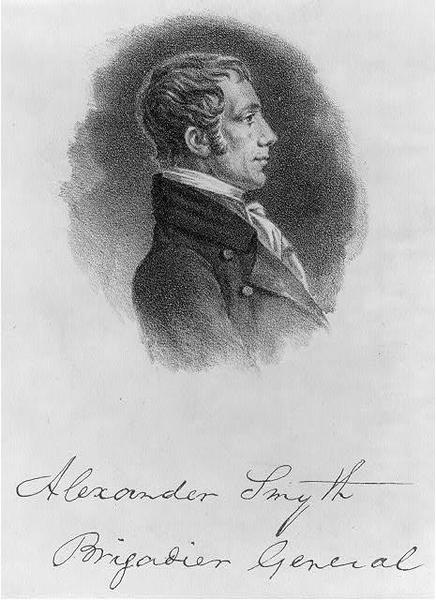 Alexander Smyth
Brigadier General